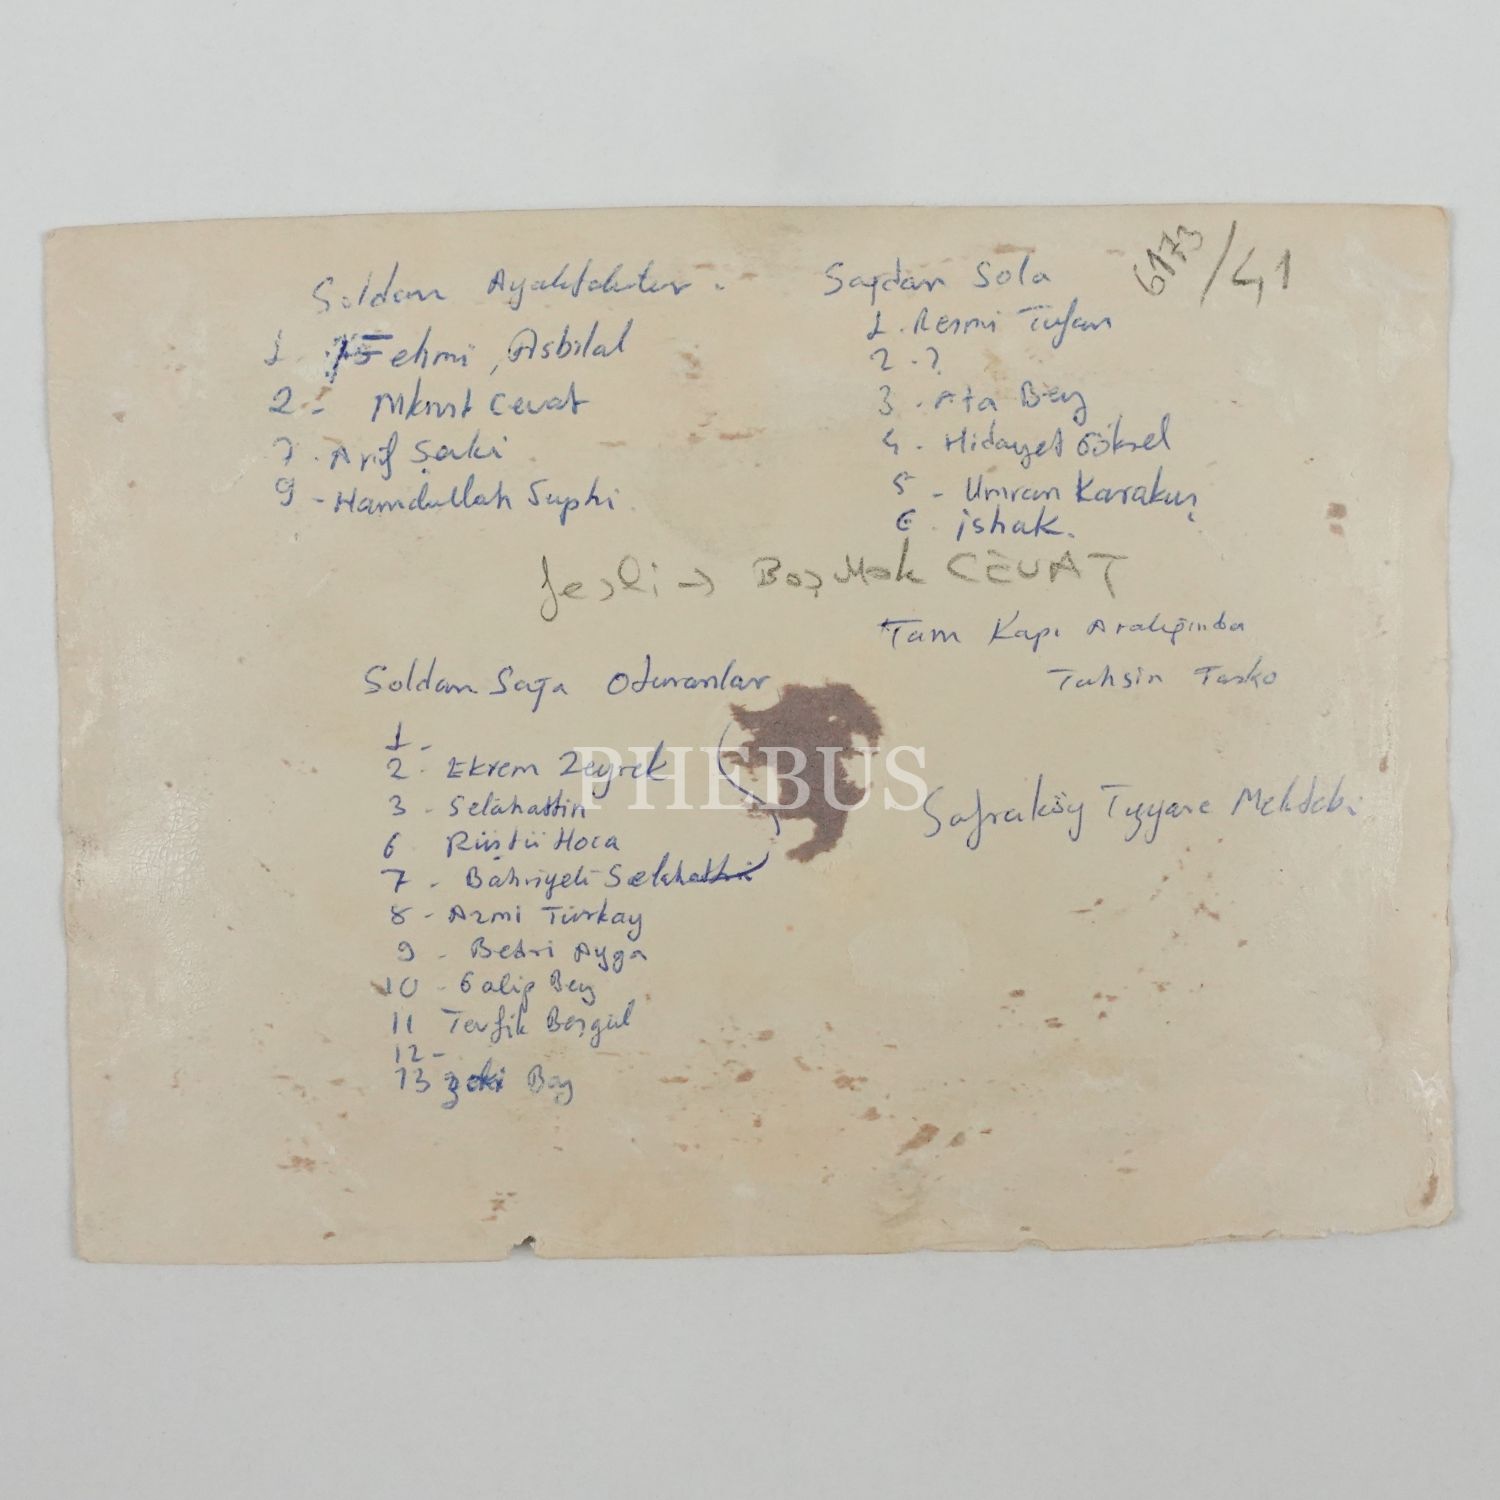 6173/41
Soldan Ayaktakiler.
1. Fehmi, Asbilal
2 - Mknst Cevat
7. Arif Şaki
9 - Hamdullah Suphi.
Sağdan Sola
1. Resmi Tufan
2. ?
3. Ata Bey
4. Hidayet Göksel
5 - Umran Karakuş
6. ishak.
fesli → Baş Mak CEVAT
Tam Kapı Aralığında
Tahsin
Soldan Sağa Oturanlar
1 -
2. Ekrem Zeyrek
3 - Selâhattin
6 Rüştü Hoca
7 - Bahriyeli Selahattin
8 - Azmi Türkay
9 - Bedri Ayga
10 - Galip Bey
11 Tevfik Başgül
12 -
13 zeki Bey
Safraköy Tayyare Mektebi
PHEBUS